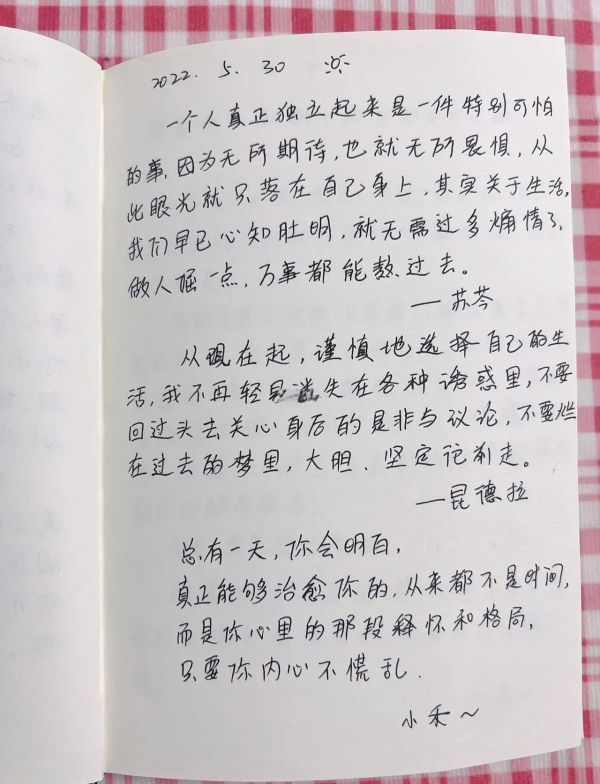 2022. 5. 30
一个人真正独立起来是一件特别可怕
的事,因为无所期待,也就无所畏惧,从
此眼光就只落在自己身上,其实关于生活,
我们早已心知肚明,就无需过多煽情了,
做人倔一点,万事都能熬过去。
—苏芩
从现在起,谨慎地选择自己的生
活,我不再轻易消失在各种诱惑里,不要
回过头去关心身后的是非与议论,不要烂
在过去的梦里,大胆、坚定往前走。
—昆德拉
总有一天,你会明白,
真正能够治愈你的,从来都不是时间,
而是你心里的那段释怀和格局,
只要你内心不慌乱.
小禾~